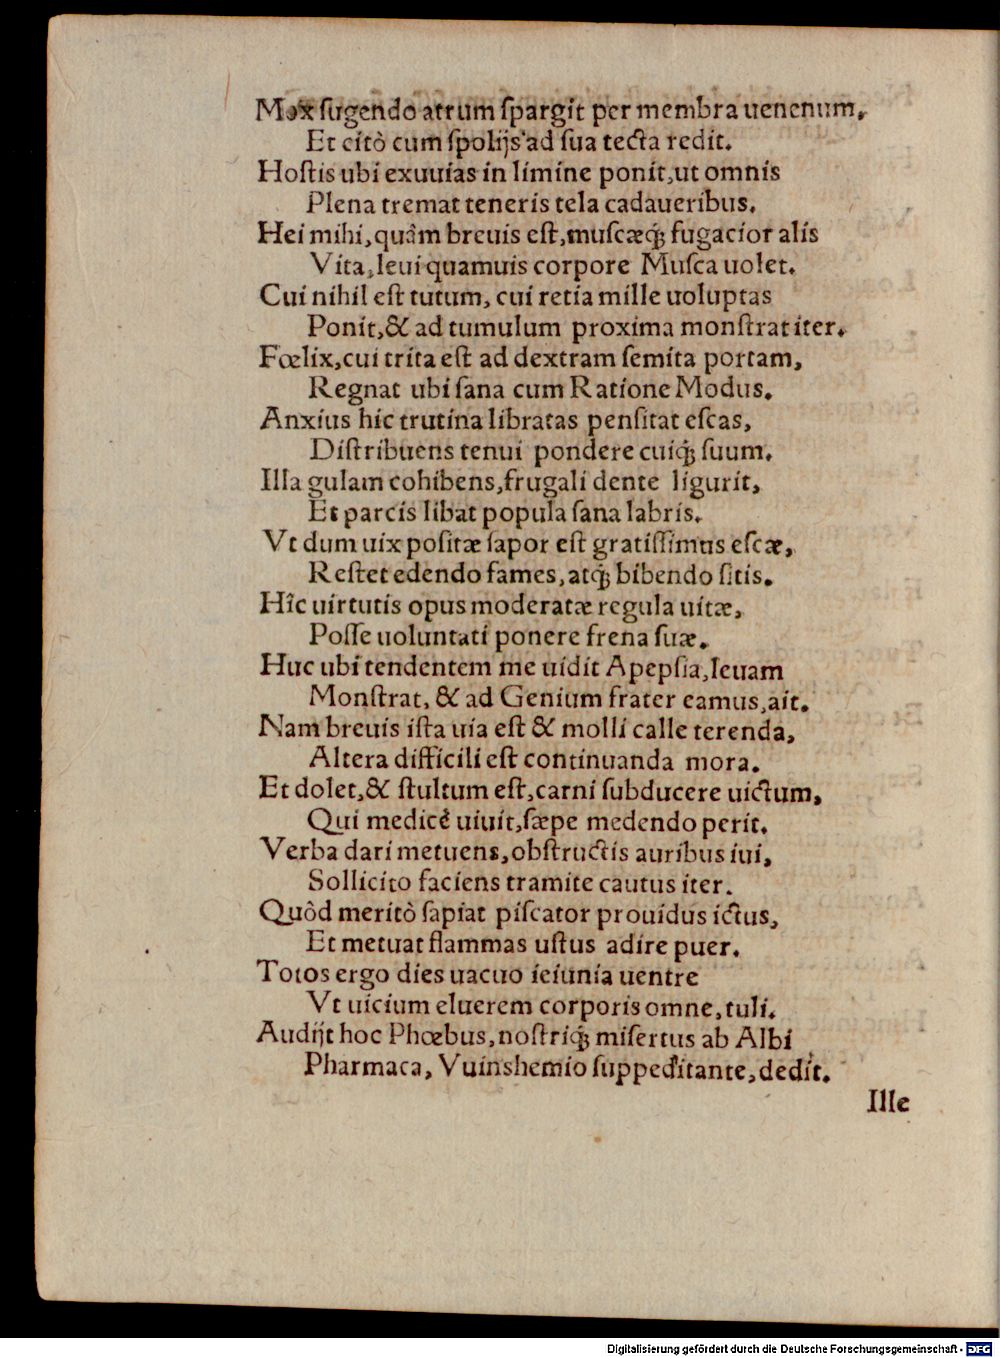 Mox ſugendo atrum ſpargit per membra uenenum,
Et citò cum ſpolijs ad ſua tecta redit.
Hoſtis ubi exuuias in limine ponit, ut omnis
Plena tremat teneris tela cadaueribus.
Hei mihi, quàm breuis eſt, muſcæq́; fugacior alis
Vita, leui quamuis corpore Muſca uolet.
Cui nihil eſt tutum, cui retia mille uoluptas
Ponit, & ad tumulum proxima monſtrat iter.
Fœlix, cui trita eſt ad dextram ſemita portam,
Regnat ubi ſana cum Ratione Modus.
Anxius hic trutina libratas penſitat eſcas,
Diſtribuens tenui pondere cuiq́; ſuum.
Illa gulam cohibens, frugali dente ligurit,
Et parcis libat popula ſana labris.
Vt dum uix poſitæ ſapor eſt gratiſſimus eſcæ,
Reſtet edendo fames, atq́; bibendo ſitis.
Hîc uirtutis opus moderatæ regula uitæ,
Poſſe uoluntati ponere frena ſuæ.
Huc ubi tendentem me uidit Apepſia, leuam
Monſtrat, & ad Genium frater eamus, ait.
Nam breuis iſta uia eſt & molli calle terenda,
Altera difficili eſt continuanda mora.
Et dolet, & ſtultum eſt, carni ſubducere uictum,
Qui medicè uiuit, ſæpe medendo perit.
Verba dari metuens, obſtructis auribus iui,
Sollicito faciens tramite cautus iter.
Quòd meritò ſapiat piſcator prouidus ictus,
Et metuat flammas uſtus adire puer.
Totos ergo dies uacuo ieiunia uentre
Vt uicium eluerem corporis omne, tuli.
Audijt hoc Phœbus, noſtriq́; miſertus ab Albi
Pharmaca, Vuinshemio ſuppeditante, dedit.
Ille
Digitalisierung gefördert durch die Deutsche Forschungsgemeinschaft - DFG